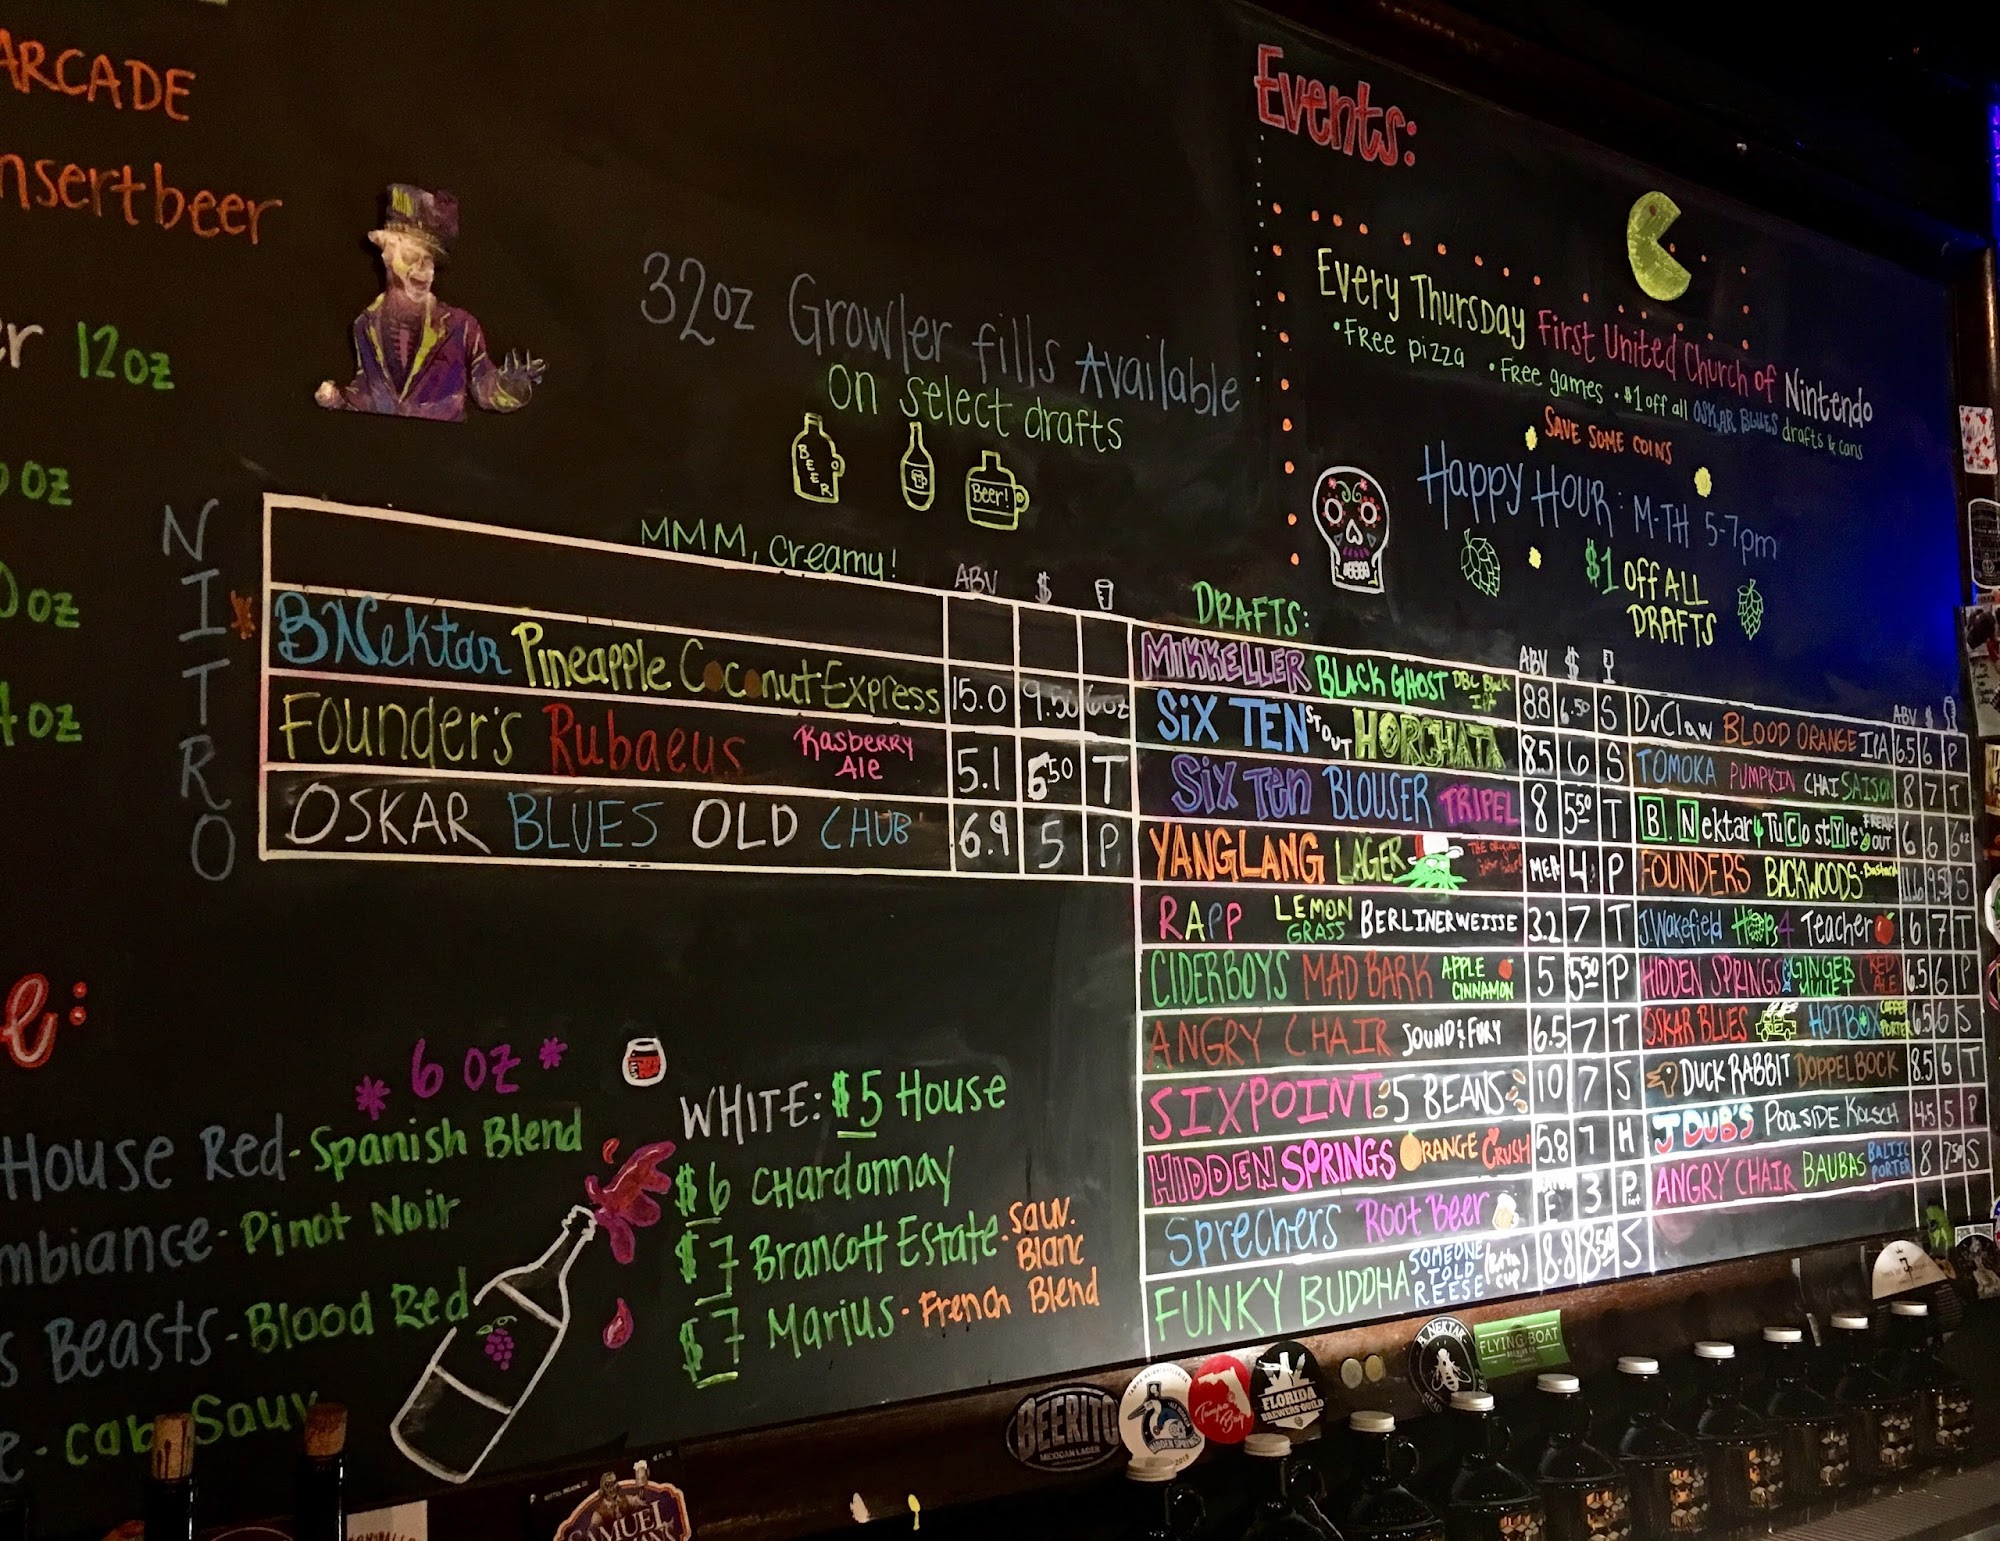 ARCADE
nsertbeer
er 12oz
oz
0oz
4oz
32oz Growler fills Available
on select drafts
BEER
Beer!
Events:
Every Thursday First United Church of Nintendo
•Free pizza •Free games •$1 off all OSKAR BLUES drafts & cans
SAVE SOME COINS
Happy Hour: M-TH 5-7pm
$1 OFF ALL
DRAFTS
NITRO
MMM, creamy!
ABV $
BNektar Pineapple Coconut Express 15.0 9.50 6oz
Founder's Rubaeus Rasberry Ale 5.1 5.50 T
OSKAR BLUES OLD CHUB 6.9 5 P
DRAFTS:
ABV $
MIKKELLER BLACK GHOST DBL Black IPA 8.8 6.50 S
SiX TEN STOUT HORCHATA 8.5 6 S
Six Ten BLOUSER TRIPEL 8 5.50 T
YANGLANG LAGER Meh 4 P
RAPP LEMON GRASS BERLINERWEISSE 3.2 7 T
CIDERBOYS MAD BARK APPLE CINNAMON 5 5.50 P
ANGRY CHAIR SOUND & FURY 6.5 7 T
SIXPOINT 5 BEANS 10 7 S
HIDDEN SPRINGS ORANGE CRUSH 5.8 7 H
Sprechers Root Beer E 3 Pint
FUNKY BUDDHA SOMEONE TOLD REESE 8.8 8.50 S
ABV $
DuClaw BLOOD ORANGE IPA 6.5 6 P
TOMOKA PUMPKIN CHAI SAISON 8 7 T
B. Nektar TuCo style FREAK OUT 6 6 6oz
FOUNDERS BACKWOODS Bastard 11.6 9.50 S
J.Wakefield Hops 4 Teacher 6 7 T
HIDDEN SPRINGS GINGER MULLET RED ALE 6.5 6 P
OSKAR BLUES HOTBOX COFFEE PORTER 6.5 6 S
DUCK RABBIT DOPPELBOCK 8.5 6 T
J DUB'S POOLSIDE KOLSCH 4.5 5 P
ANGRY CHAIR BAUBAS BALTIC PORTER 8 7.50 S
e:
* 6 oz *
House Red - Spanish Blend
mbiance - Pinot Noir
s Beasts - Blood Red
e - Cab Sauv
WHITE: $5 House
$6 Chardonnay
$7 Brancott Estate - Sauv. Blanc
$7 Marius - French Blend
BEERITO
MEXICAN LAGER
HIDDEN SPRINGS
Tampa Bay
FLORIDA
BREWERS GUILD
B. NEKTAR
FLYING BOAT
SAMUEL